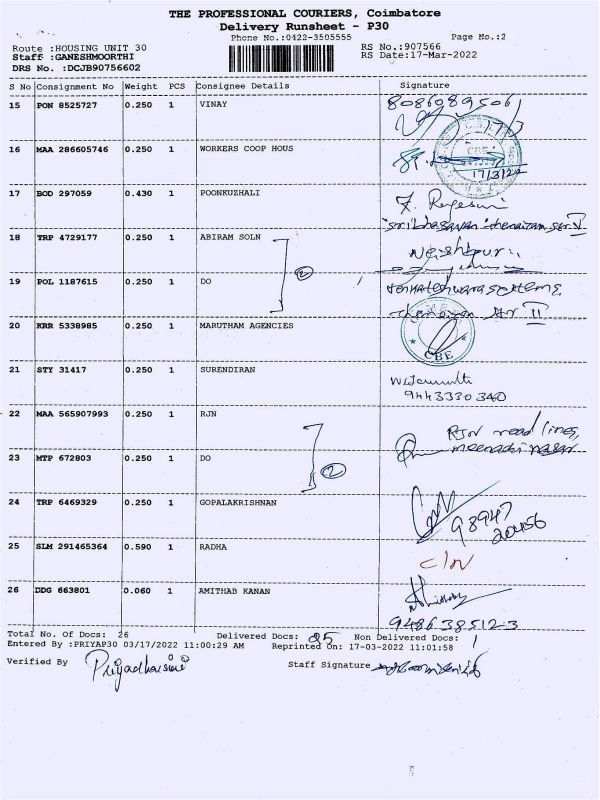 THE PROFESSIONAL COURIERS, Coimbatore
Delivery Runsheet - P30
Phone No.:0422-3505555
Page No.:2
Route :HOUSING UNIT 30
RS No.:907566
Staff :GANESHMOORTHI
RS Date:17-Mar-2022
DRS No. :DCJB90756602
S No Consignment No Weight PCS Consignee Details Signature
15 PON 8525727 0.250 1 VINAY
16 MAA 286605746 0.250 1 WORKERS COOP HOUS
CBE
17/3/22
17 BOD 297059 0.430 1 POONKUZHALI
18 TRP 4729177 0.250 1 ABIRAM SOLN
2
19 POL 1187615 0.250 1 DO
20 KRR 5338985 0.250 1 MARUTHAM AGENCIES
CBE
21 STY 31417 0.250 1 SURENDIRAN
9443330340
22 MAA 565907993 0.250 1 RJN
RJN
23 MTP 672803 0.250 1 DO
2
24 TRP 6469329 0.250 1 GOPALAKRISHNAN
98947
20456
25 SLM 291465364 0.590 1 RADHA
26 DDG 663801 0.060 1 AMITHAB KANAN
9486385123
Total No. Of Docs: 26 Delivered Docs: 25 Non Delivered Docs: 1
Entered By :PRIYAP30 03/17/2022 11:00:29 AM Reprinted On: 17-03-2022 11:01:58
Verified By Priyadharsini Staff Signature